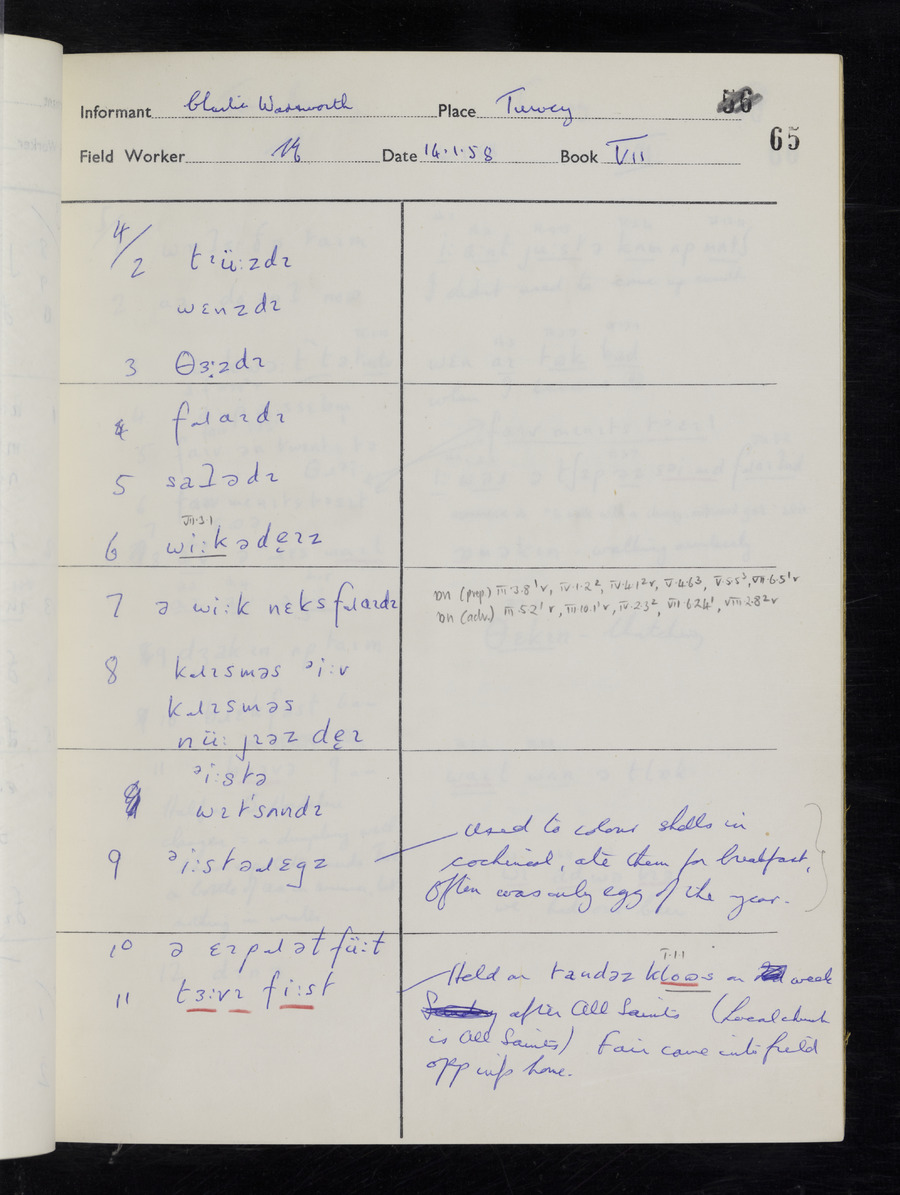 Informant Charlie Wadsworth Place Turvey 56
65
Field Worker Date 14.1.58 Book VII
4/2 tɹüːzdɪ
wɛnzdɪ
3 θɜːzdɪ
4 fɹaɪdɪ
5 saʔədɪ
VII.3.1
6 wiːkədẹɪz
7 ə wiːk nɛks fɹaɪdɪ
ɒn (prep) III.3.8¹v, IV.1.2², IV.4.1²v, V.4.6³, V.5.5³, VII.6.5¹v
ɒn (adv.) III.5.2¹v, III.10.1¹v, IV.2.3², VII.6.24¹, VIII.2.8²v
8 kɹɪsməs ᵊiːv
kɹɪsməs
nüː jɪəz dẹɪ
ᵊiːstə
wɪtsʌndɪ
9 ᵊiːstəɹɛgz
Used to colour shells in
cochineal, ate them for breakfast,
Often was only egg of the year.
10 ə ɛɪpɹəl ət füːt
11 tɜːvɪ fiːst
V.1.1
Held on taʊdəz kloəs on week
after All Saints (Local church
is All Saints) Fair came into field
opp inf's home.